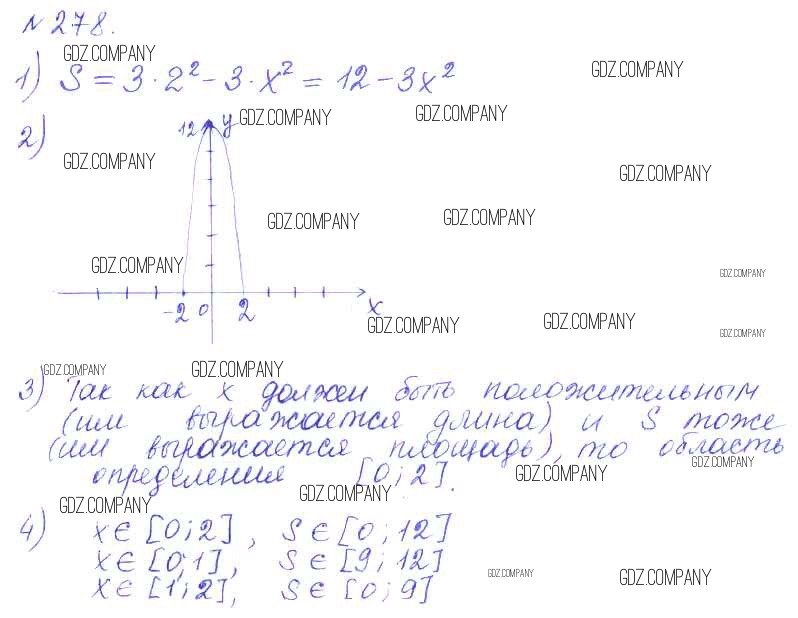 №278.
GDZ.COMPANY
GDZ.COMPANY
1) S = 3·2² - 3·x² = 12 - 3x²
2)
12
y
GDZ.COMPANY
GDZ.COMPANY
GDZ.COMPANY
GDZ.COMPANY
GDZ.COMPANY
GDZ.COMPANY
GDZ.COMPANY
GDZ.COMPANY
-2 0 2 x
GDZ.COMPANY
GDZ.COMPANY
GDZ.COMPANY
GDZ.COMPANY
GDZ.COMPANY
3) Так как x должен быть положительным
(им выражается длина) и S тоже
(им выражается площадь), то область
GDZ.COMPANY
определения [0; 2].
GDZ.COMPANY
GDZ.COMPANY
GDZ.COMPANY
4) x∈[0;2], S∈[0;12]
x∈[0;1], S∈[9;12]
GDZ.COMPANY
GDZ.COMPANY
x∈[1;2], S∈[0;9]